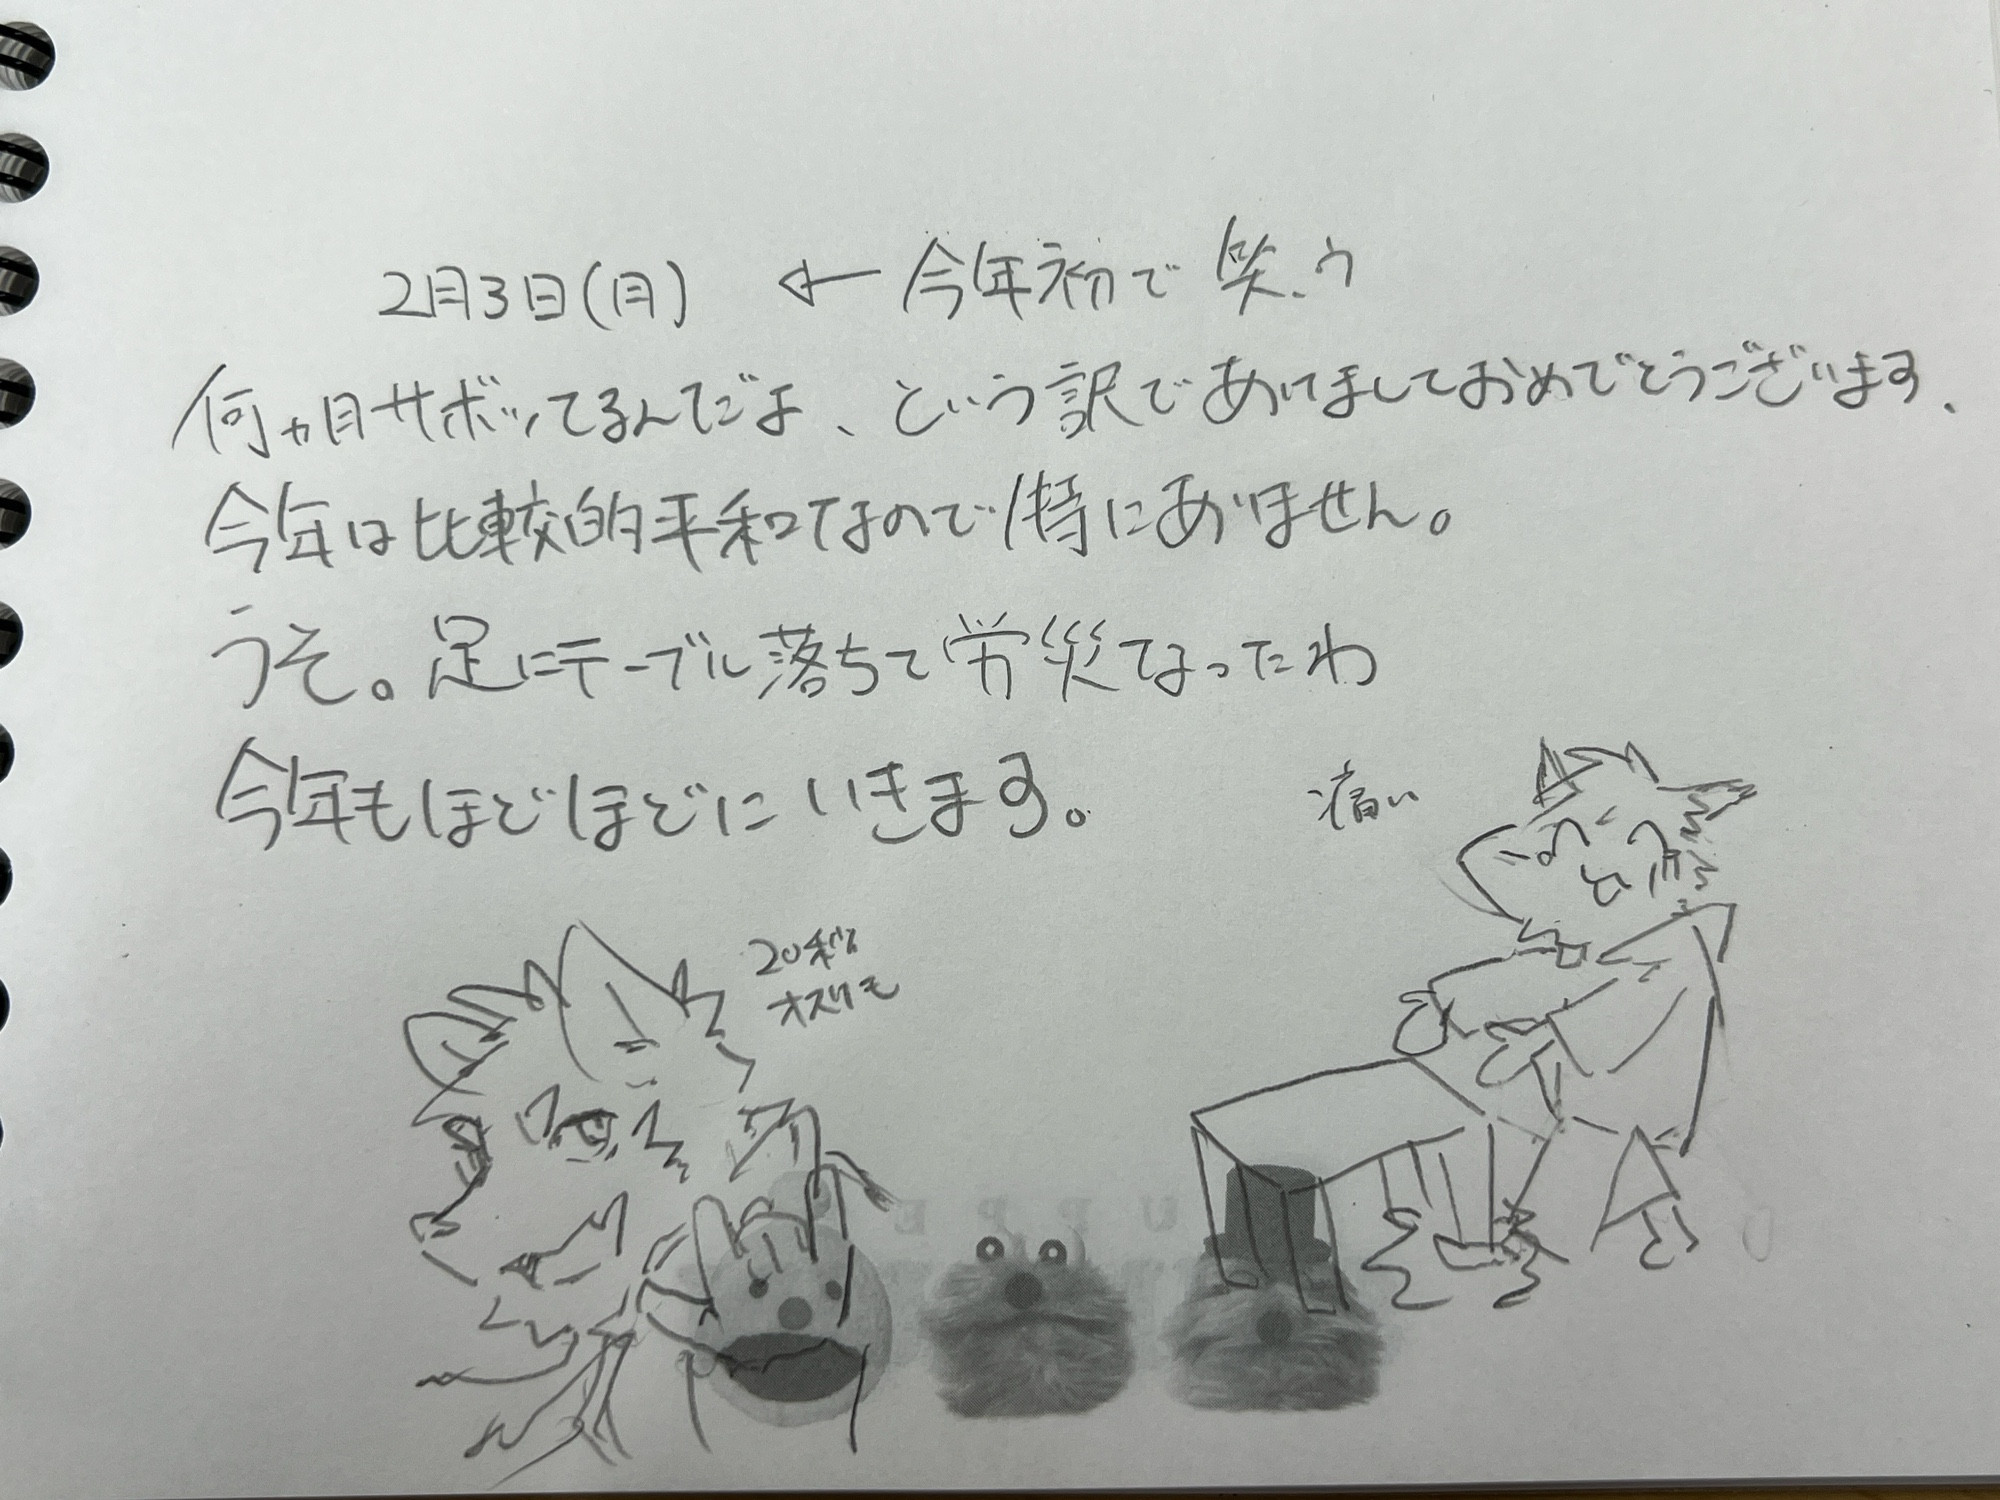 2月3日(月) ← 今年初で笑う
何ヵ月サボってるんだよ、という訳であけましておめでとうございます、
今年は比較的平和なので特にありません。
うそ。足にテーブル落ちて労災なったわ
今年もほどほどにいきます。
痛い
20秒